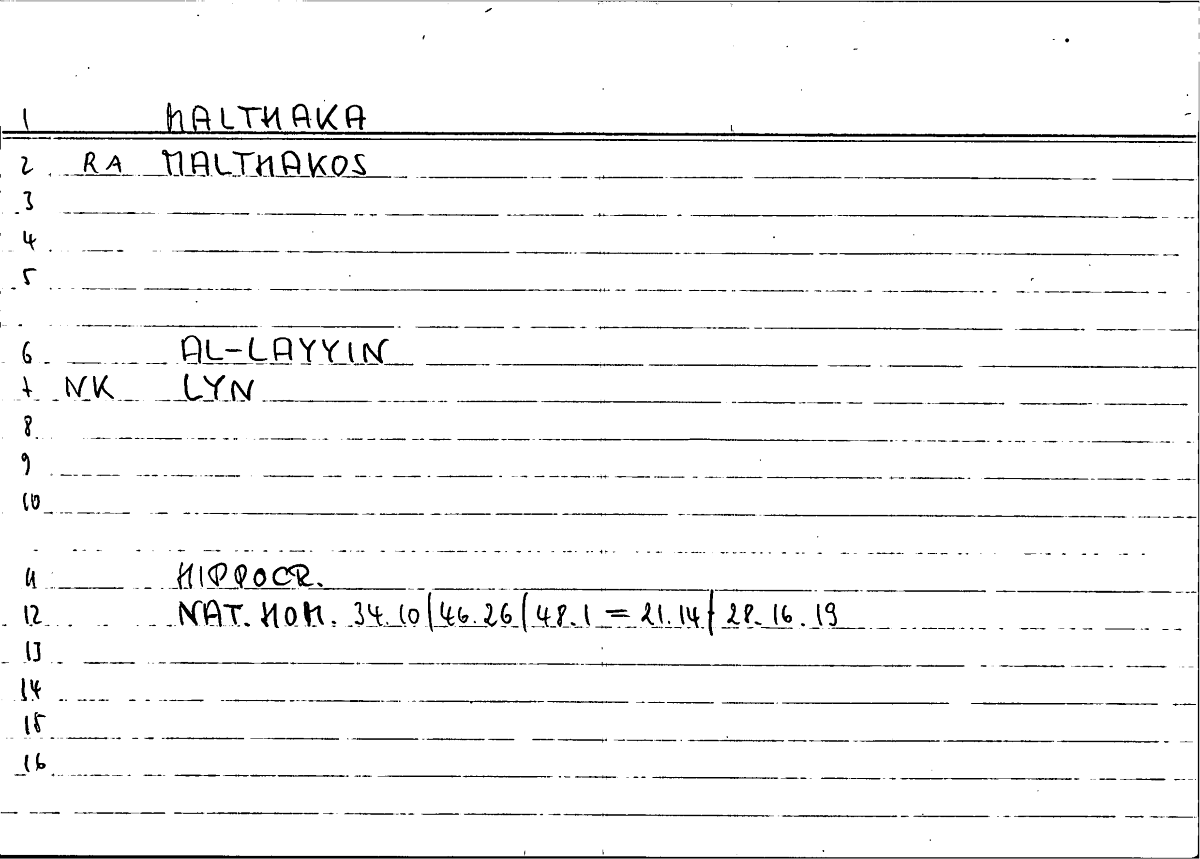 1 MALTHAKA
2 RA MALTHAKOS
3
4
5
6 AL-LAYYIN
7 NK LYN
8
9
10
11 HIPPOCR.
12 NAT. HOM. 34.10|46.26|48.1 = 21.14|28.16.19
13
14
15
16